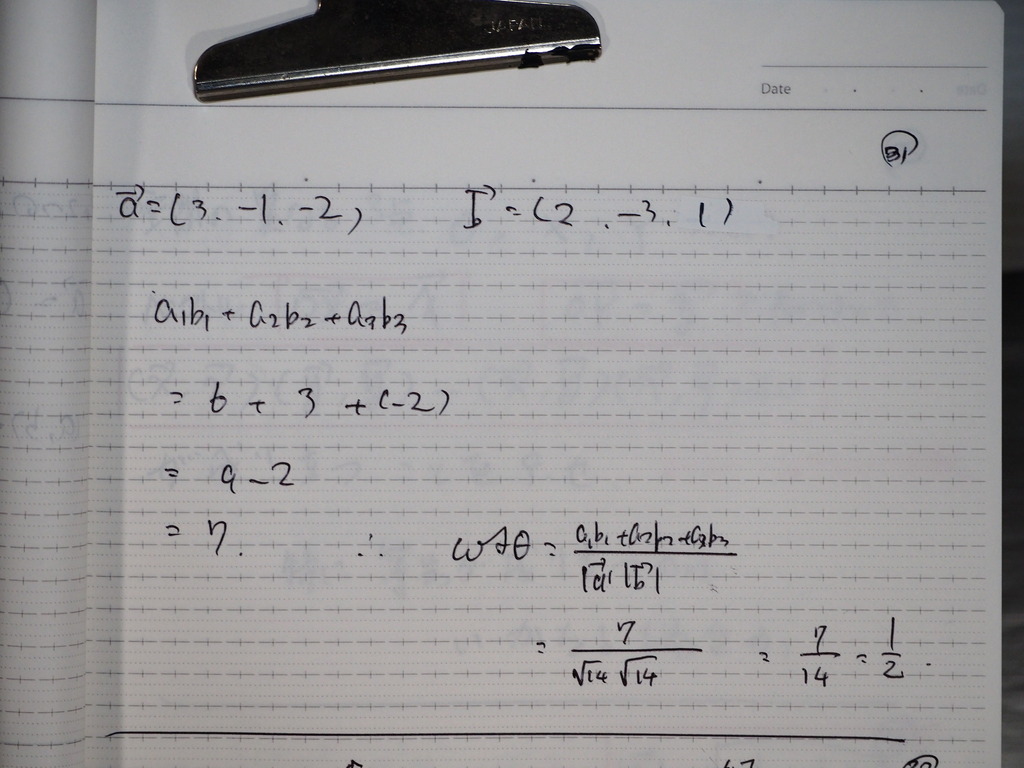 JAPAN
Date
31
a⃗ = (3. -1. -2) b⃗ = (2. -3. 1)
a₁b₁ + a₂b₂ + a₃b₃
= 6 + 3 + (-2)
= 9 - 2
= 7. ∴ cosθ = (a₁b₁ + a₂b₂ + a₃b₃) / (|a⃗| |b⃗|)
= 7 / (√14 √14) = 7/14 = 1/2.